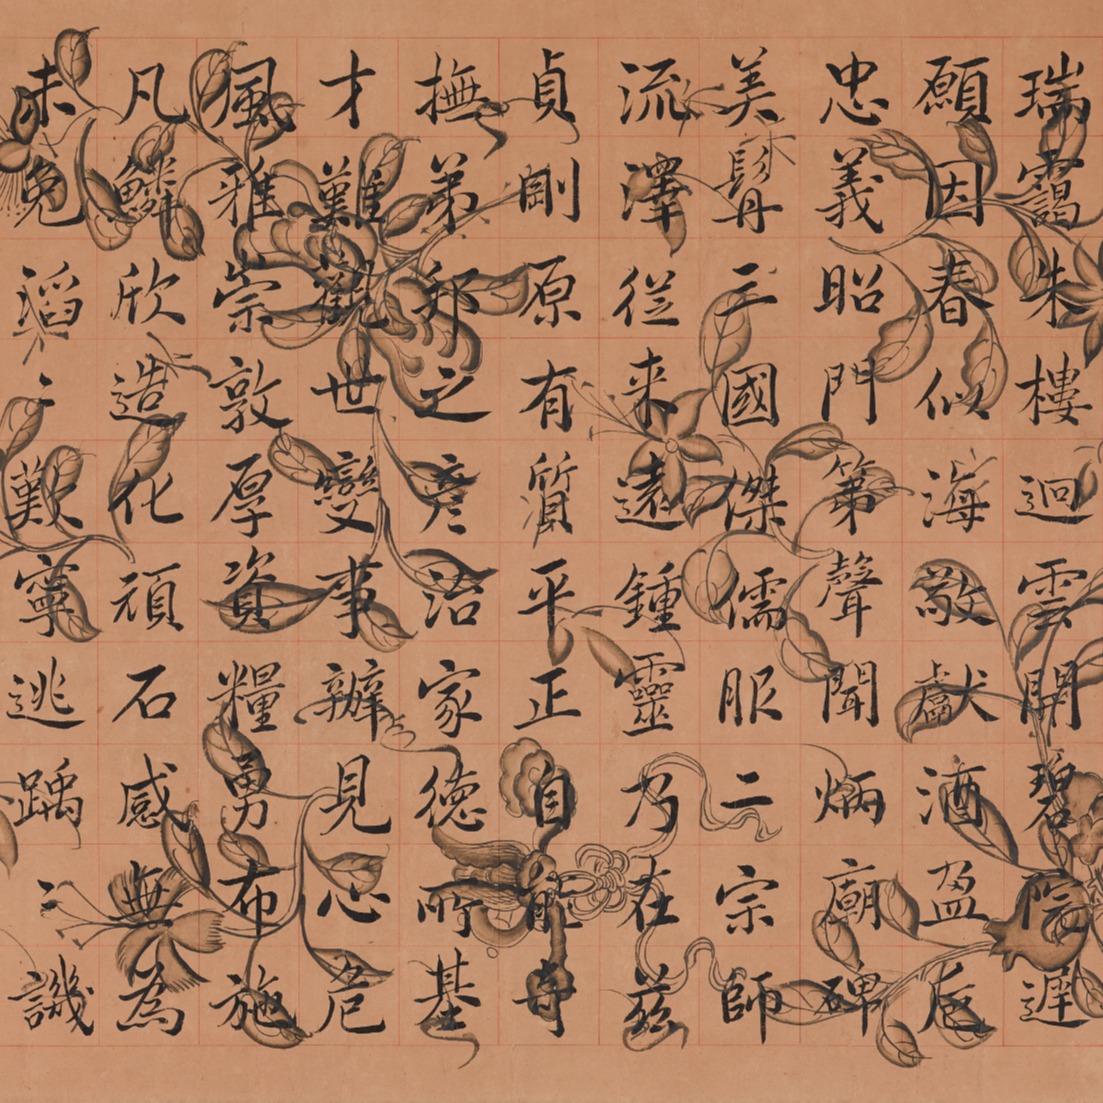 瑞靄朱樓迥雲開碧院遲
願因春似海敬獻酒盈卮
忠義昭門第聲聞炳廟碑
美髯三國傑儒服二宗師
流澤從来遠鍾靈乃在茲
貞剛原有質平正自能奇
撫弟邦之彥治家德所基
才難觀世變事辦見心危
風雅崇敦厚資糧勇布施
凡鱗欣造化頑石感無為
未免滔〻歎寧逃踽〻譏